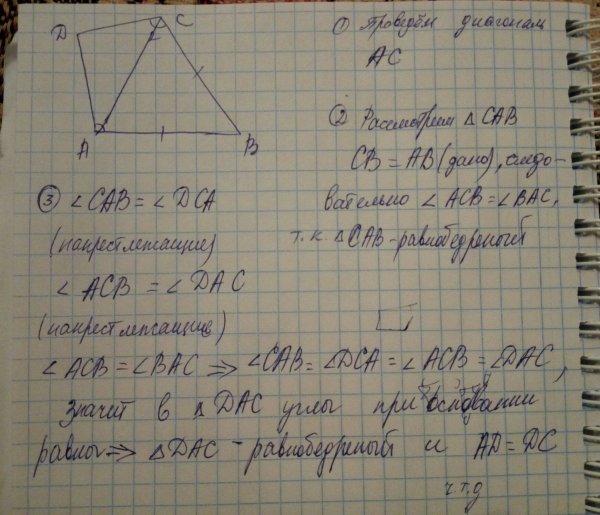 D
C
A
B
① Проведём диагональ
AC
② Рассмотрим △ CAB
CB = AB (дано), следо-
вательно ∠ ACB = ∠ BAC,
т.к. △ CAB - равнобедреный
③ ∠ CAB = ∠ DCA
(накрестлежащие)
∠ ACB = ∠ DAC
(накрестлежащие)
∠ ACB = ∠ BAC ⇒ ∠ CAB = ∠ DCA = ∠ ACB = ∠ DAC,
значит в △ DAC углы при основании
равны ⇒ △ DAC - равнобедреный и AD = DC
ч.т.д